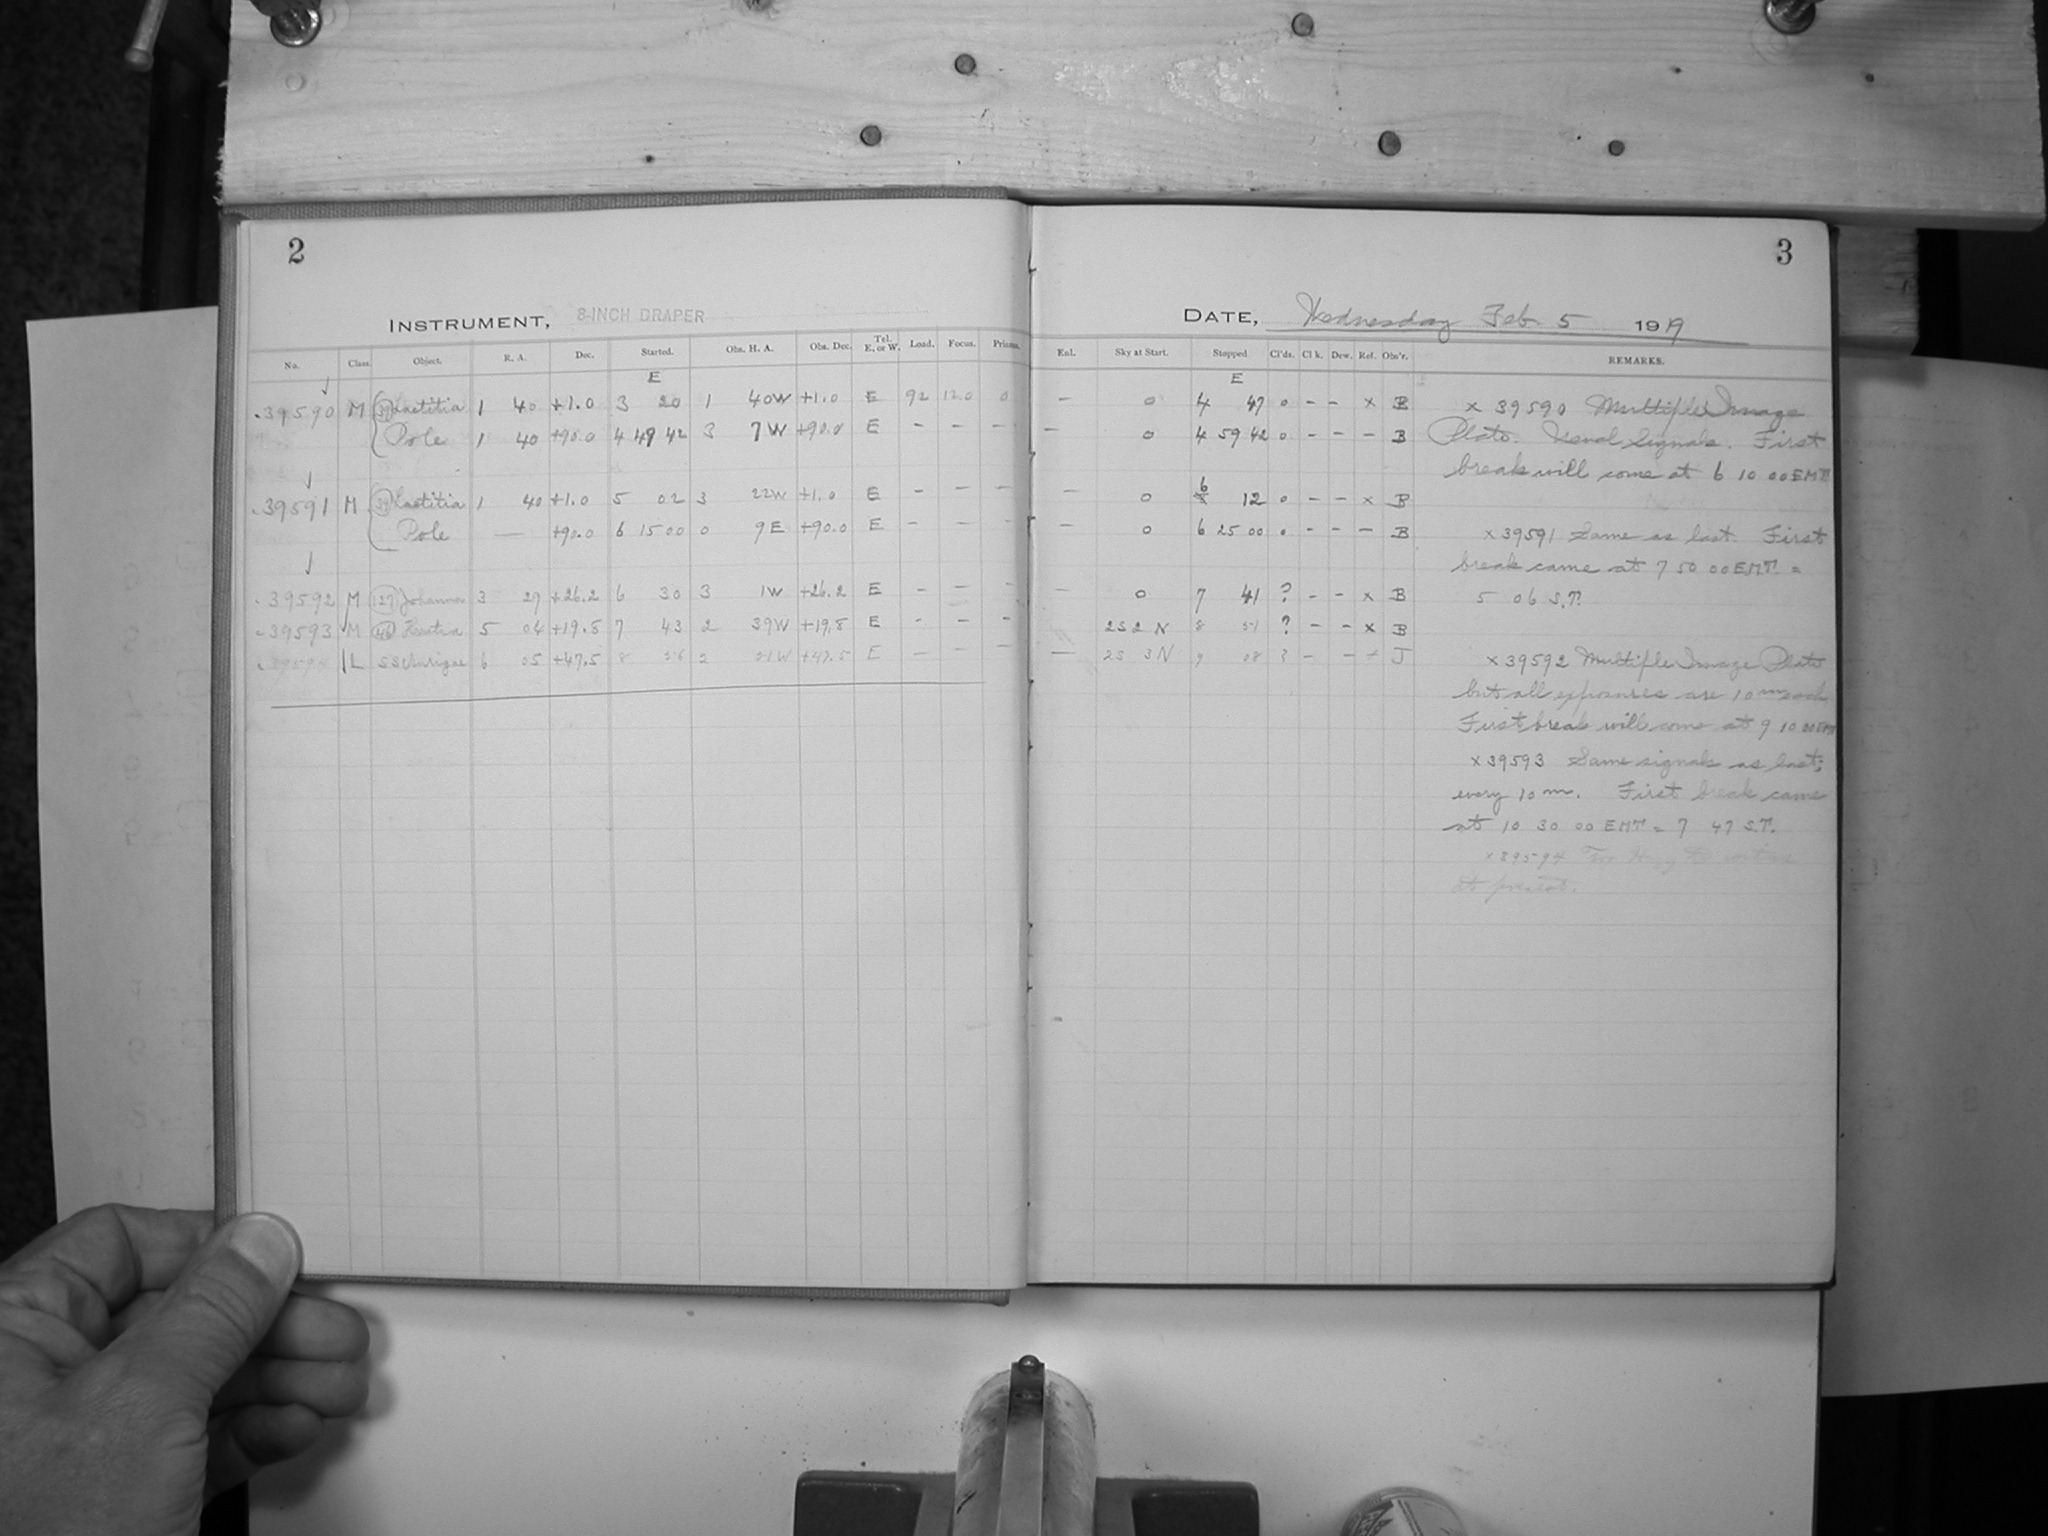 2
INSTRUMENT, 8-INCH DRAPER
No. Class Object. R. A. Dec. Started. Obs. H. A. Obs. Dec. Tel. E. or W. Load. Focus. Prisms.
E
39590 M (39) Laetitia 1 40 +1.0 3 20 1 40W +1.0 E 92 12.0 0
Pole 1 40 +90.0 4 49 42 3 7W +90.0 E - - -
39591 M (39) Laetitia 1 40 +1.0 5 02 3 22W +1.0 E - - -
Pole — +90.0 6 15 00 0 9E +90.0 E - - -
39592 M (127) Johanna 3 27 +26.2 6 30 3 1W +26.2 E - - -
39593 M 5 04 +19.8 7 43 2 39W +19.8 E - - -
39594 L SS Aurigae 6 05 +47.5 8 56 2 51W +47.5 E - - -
3
DATE, Wednesday Feb 5 1919
Enl. Sky at Start. Stopped Cl'ds. Cl k. Dew. Ref. Obs'r. REMARKS.
E
— 0 4 47 0 - - x B
— 0 4 59 42 0 - - - B
— 0 6 12 0 - - x B
— 0 6 25 00 0 - - - B
— 0 7 41 ? - - x B
2S 2 N 8 51 ? - - x B
— 2S 3 N 9 08 ? - - J
x 39590 Multiple Image
Plate. Usual Signals. First
break will come at 6 10 00 EMT
x 39591 Same as last. First
break came at 7 50 00 EMT. =
5 06 S.T.
x 39592 Multiple Image Plate
but all exposures are 10m each
First break will come at 9 10 00 EMT
x 39593 Same signals as last;
every 10 m. First break came
at 10 30 00 EMT = 7 47 S.T.
x 39594 Too Hazy to
at present.